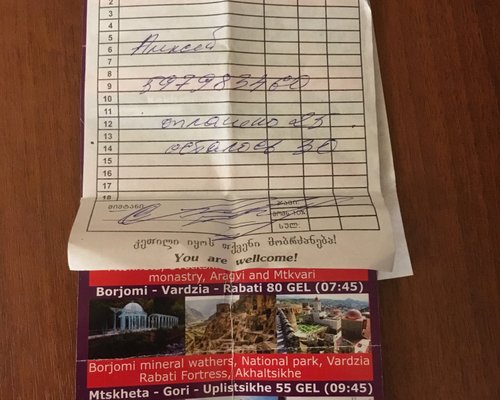 2
3
4
5
6
7
8
9
10
11
12
13
14
15
16
17
18
Алексей
597983460
оплачено 25
осталось 30
მიმტანი
ჯამი:
მომს.10%
სულ:
კეთილი იყოს თქვენი მობრძანება!
You are wellcome!
monastry, Aragvi and Mtkvari
Borjomi - Vardzia - Rabati 80 GEL (07:45)
Borjomi mineral wathers, National park, Vardzia
Rabati Fortress, Akhaltsikhe
Mtskheta - Gori - Uplistsikhe 55 GEL (09:45)